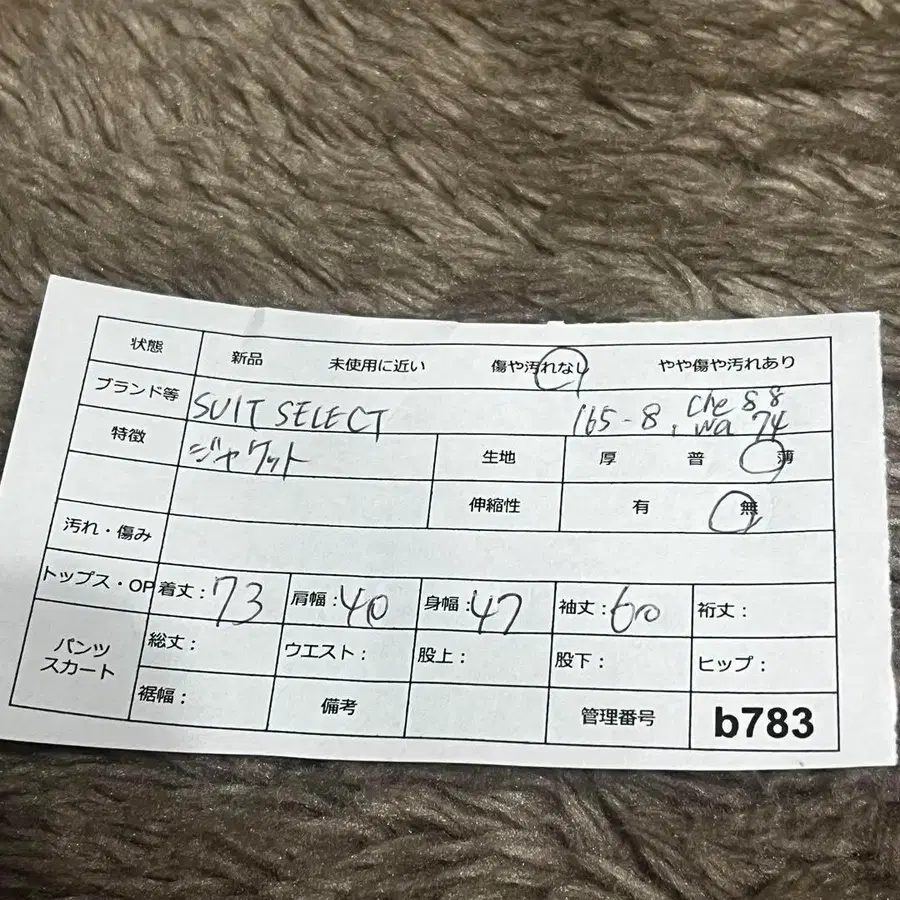 状態 新品 未使用に近い 傷や汚れなし やや傷や汚れあり
ブランド等 SUIT SELECT 165-8. Che 88
wa 74
特徴 ジャケット 生地 厚 普 薄
伸縮性 有 無
汚れ・傷み
トップス・OP 着丈：73 肩幅：40 身幅：47 袖丈：60 裄丈：
パンツ スカート 総丈： ウエスト： 股上： 股下： ヒップ：
裾幅： 備考 管理番号 b783